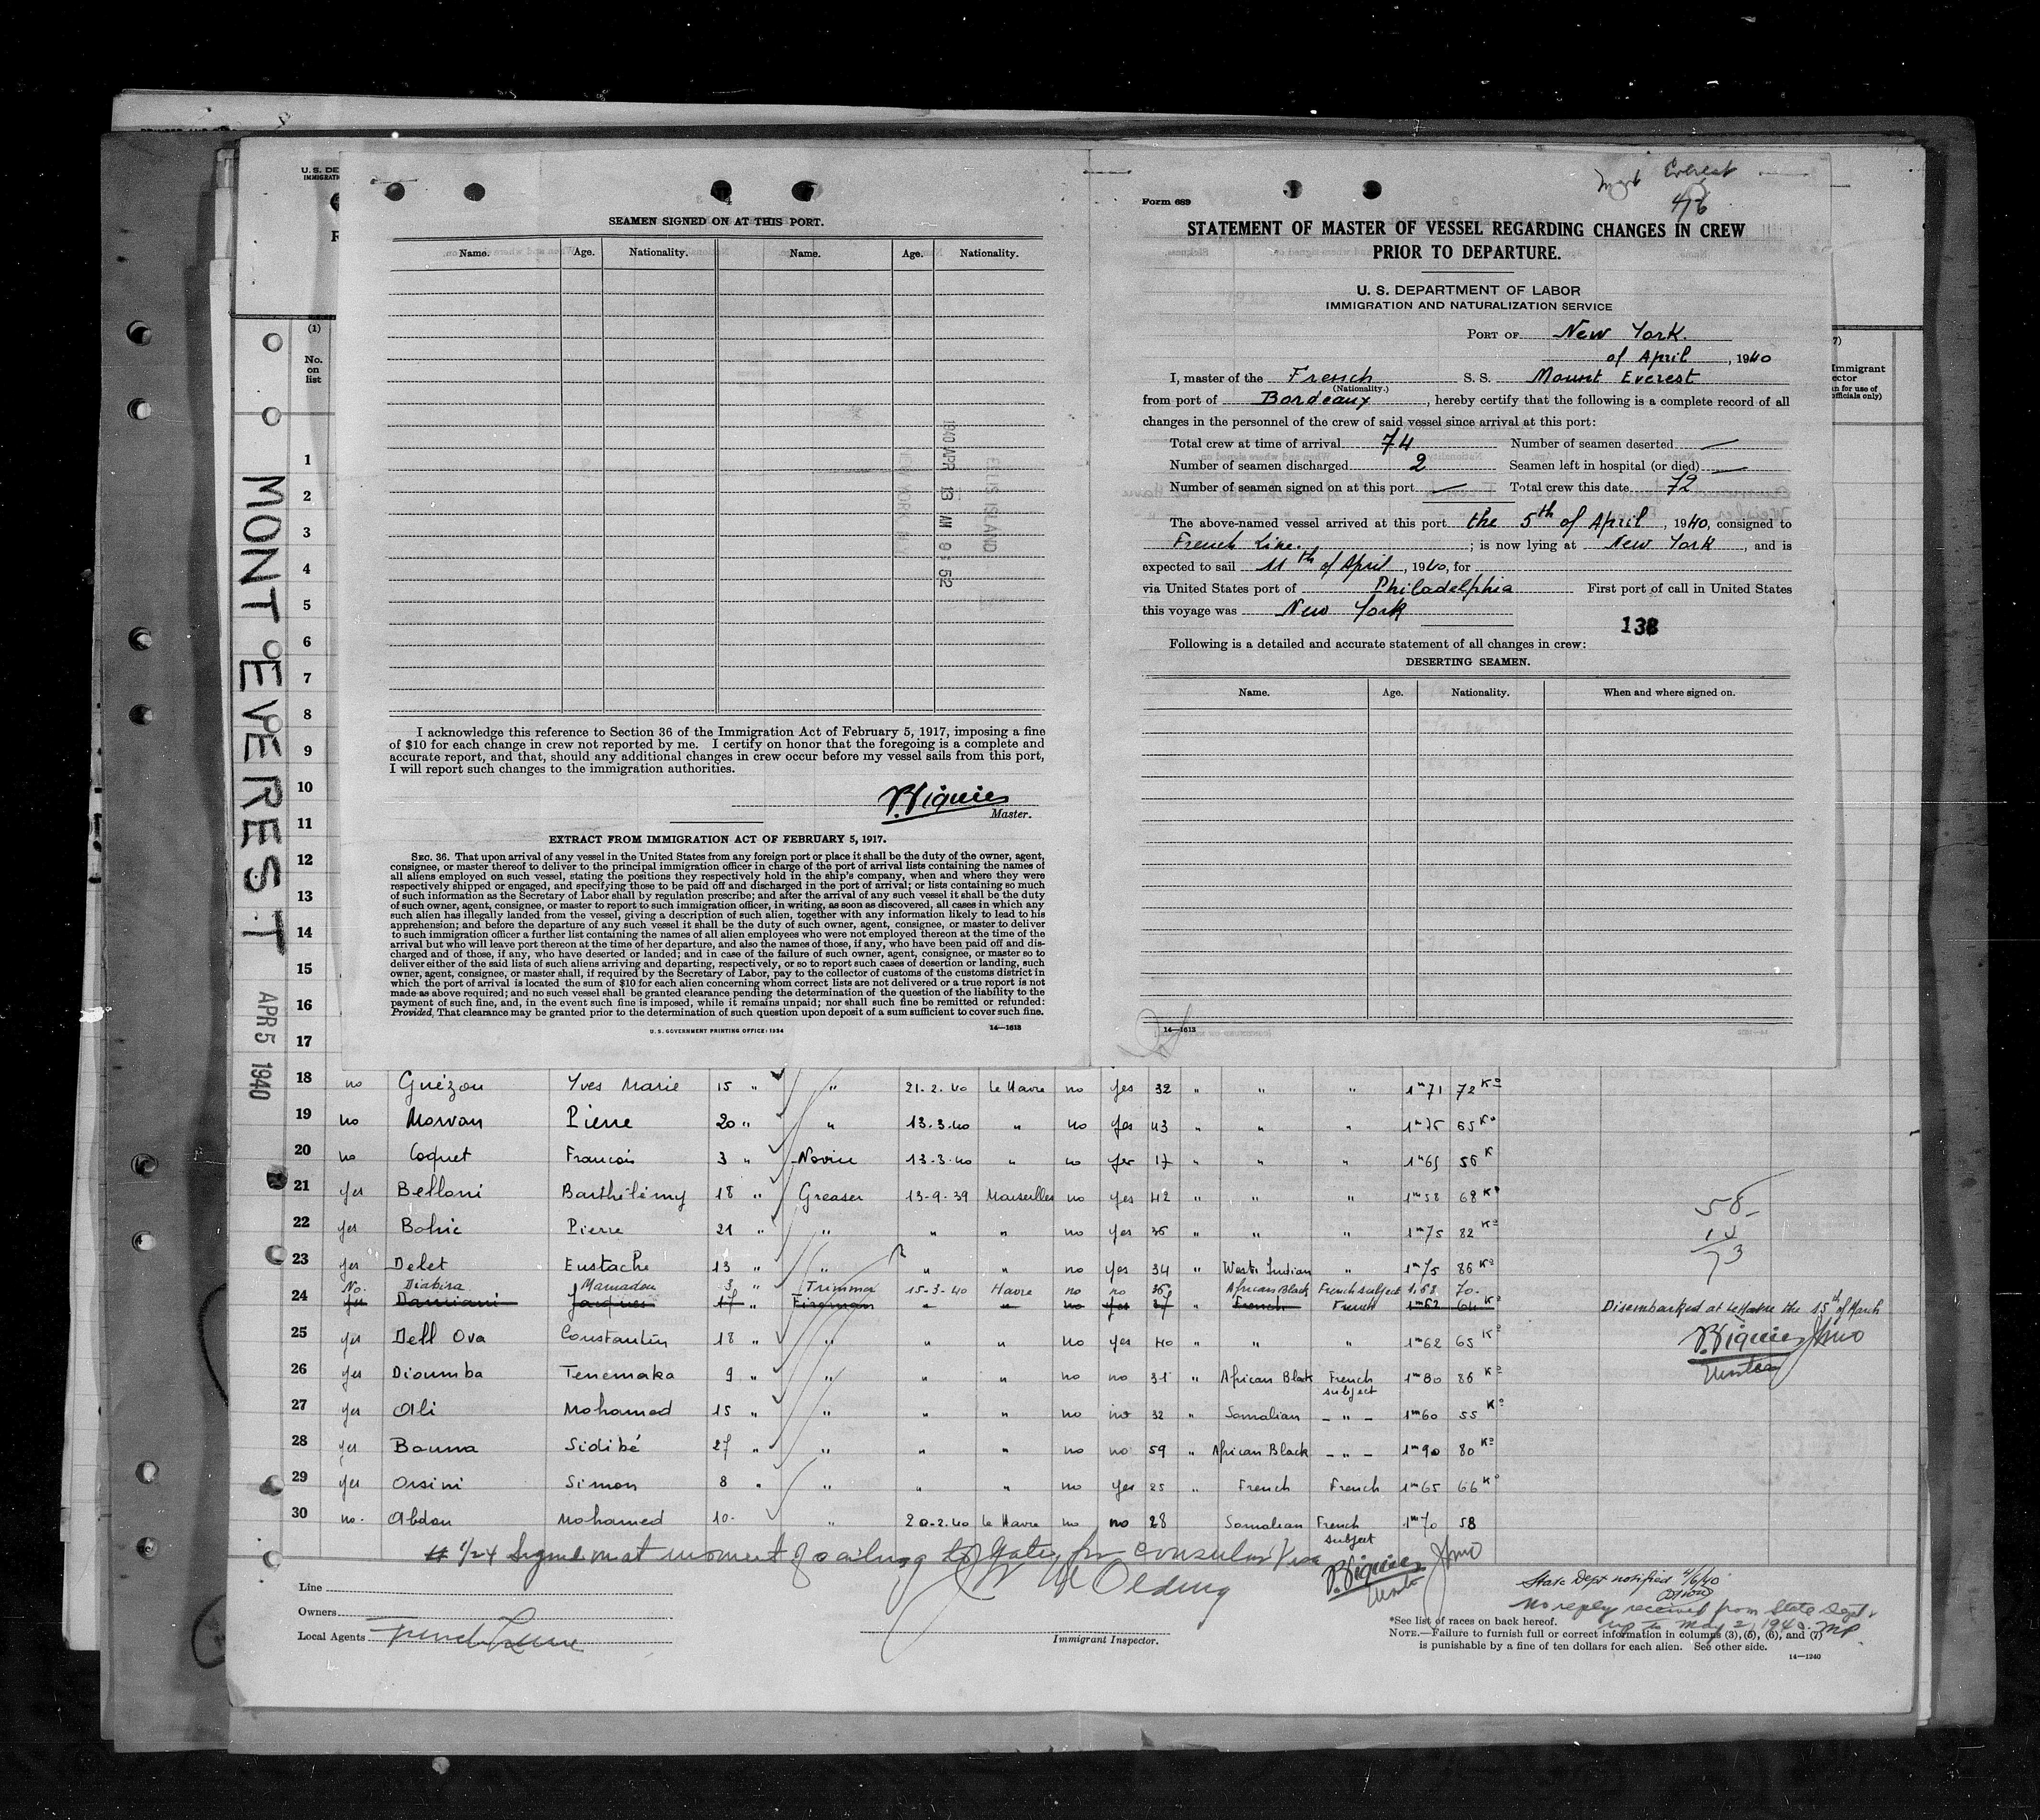 U. S. DE
IMMIGRAT
SEAMEN SIGNED ON AT THIS PORT.
Name. Age. Nationality. Name. Age. Nationality.
1940 APR 13 AM 9 52
ELLIS ISLAND
I acknowledge this reference to Section 36 of the Immigration Act of February 5, 1917, imposing a fine
of $10 for each change in crew not reported by me. I certify on honor that the foregoing is a complete and
accurate report, and that, should any additional changes in crew occur before my vessel sails from this port,
I will report such changes to the immigration authorities.
Master.
EXTRACT FROM IMMIGRATION ACT OF FEBRUARY 5, 1917.
SEC. 36. That upon arrival of any vessel in the United States from any foreign port or place it shall be the duty of the owner, agent,
consignee, or master thereof to deliver to the principal immigration officer in charge of the port of arrival lists containing the names of
all aliens employed on such vessel, stating the positions they respectively hold in the ship's company, when and where they were
respectively shipped or engaged, and specifying those to be paid off and discharged in the port of arrival; or lists containing so much
of such information as the Secretary of Labor shall by regulation prescribe; and after the arrival of any such vessel it shall be the duty
of such owner, agent, consignee, or master to report to such immigration officer, in writing, as soon as discovered, all cases in which any
such alien has illegally landed from the vessel, giving a description of such alien, together with any information likely to lead to his
apprehension; and before the departure of any such vessel it shall be the duty of such owner, agent, consignee, or master to deliver
to such immigration officer a further list containing the names of all alien employees who were not employed thereon at the time of the
arrival but who will leave port thereon at the time of her departure, and also the names of those, if any, who have been paid off and dis-
charged and of those, if any, who have deserted or landed; and in case of the failure of such owner, agent, consignee, or master so to
deliver either of the said lists of such aliens arriving and departing, respectively, or so to report such cases of desertion or landing, such
owner, agent, consignee, or master shall, if required by the Secretary of Labor, pay to the collector of customs of the customs district in
which the port of arrival is located the sum of $10 for each alien concerning whom correct lists are not delivered or a true report is not
made as above required; and no such vessel shall be granted clearance pending the determination of the question of the liability to the
payment of such fine, and, in the event such fine is imposed, while it remains unpaid; nor shall such fine be remitted or refunded:
Provided, That clearance may be granted prior to the determination of such question upon deposit of a sum sufficient to cover such fine.
U. S. GOVERNMENT PRINTING OFFICE: 1934 14—1613
Everest
4/6
Form 689
STATEMENT OF MASTER OF VESSEL REGARDING CHANGES IN CREW
PRIOR TO DEPARTURE.
U. S. DEPARTMENT OF LABOR
IMMIGRATION AND NATURALIZATION SERVICE
PORT OF New York.
of April, 1940
I, master of the French S. S. Mount Everest
(Nationality.)
from port of Bordeaux, hereby certify that the following is a complete record of all
changes in the personnel of the crew of said vessel since arrival at this port:
Total crew at time of arrival 74 Number of seamen deserted —
Number of seamen discharged 2 Seamen left in hospital (or died) —
Number of seamen signed on at this port — Total crew this date 72
The above-named vessel arrived at this port the 5th of April, 1940, consigned to
French Line. ; is now lying at New York, and is
expected to sail 11th of April, 1940, for
via United States port of Philadelphia First port of call in United States
this voyage was New York
138
Following is a detailed and accurate statement of all changes in crew:
DESERTING SEAMEN.
Name. Age. Nationality. When and where signed on.
14—1613
MONT EVEREST
APR 5 1940
(1)
No.
on
list
Immigrant
1
2
3
4
5
6
7
8
9
10
11
12
13
14
15
16
17
18 no Guézou Yves Marie 15 " " 21.2.40 le Havre no yes 32 " " " 1m71 72 Ko
19 no Morvan Pierre 20 " " 13.3.40 " no yes 43 " " " 1m75 65 Ko
20 no Coquet Francois 3 " Novice 13-3-40 " no yes 17 " " " 1m65 56 K
21 yes Belloni Barthélémy 18 " Greaser 13-9-39 Marseilles no yes 42 " " " 1m58 68 Ko
22 yes Bohic Pierre 21 " " " " no yes 36 " " " 1m75 82 Ko
23 yes Delet Eustache 13 " " " " no yes 34 " West Indian " 1m75 86 Ko
No. Diabira Mamadou 3 " Trimmer 15-3-40 Havre no no 36 African Black French subject 1.68 70.
24 yes Damiani Jacques 17 " Fireman " " no yes 37 " French French 1m62 64 Ko Disembarked at le Havre the 15th of March
25 yes Dell Ova Constantin 18 " " " " no yes 40 " " " 1m62 65 Ko
26 yes Dioumba Tenemaka 9 " " " " no no 31 " African Black French subject 1m80 86 Ko
27 yes Ali Mohamed 15 " " " " no no 32 " Somalian — " — 1m60 55 Ko
28 yes Bouna Sidibé 27 " " " " no no 59 " African Black — " — 1m90 80 Ko
29 yes Orsini Simon 8 " " " " no yes 25 " French French 1m65 66 Ko
30 no. Abdou Mohamed 10. " 20-2.40 le Havre no no 28 Somalian French subject 1m70 58
58
15
73
1/24 Signed on at moment of sailing too late for consular visa
Line
Owners
Local Agents French Line
Olding
Immigrant Inspector.
State Dept notified 4/6/40
No reply received from State Dept.
up to May 2, 1940. MP
*See list of races on back hereof.
NOTE.—Failure to furnish full or correct information in columns (3), (5), (6), and (7)
is punishable by a fine of ten dollars for each alien. See other side.
14—1240